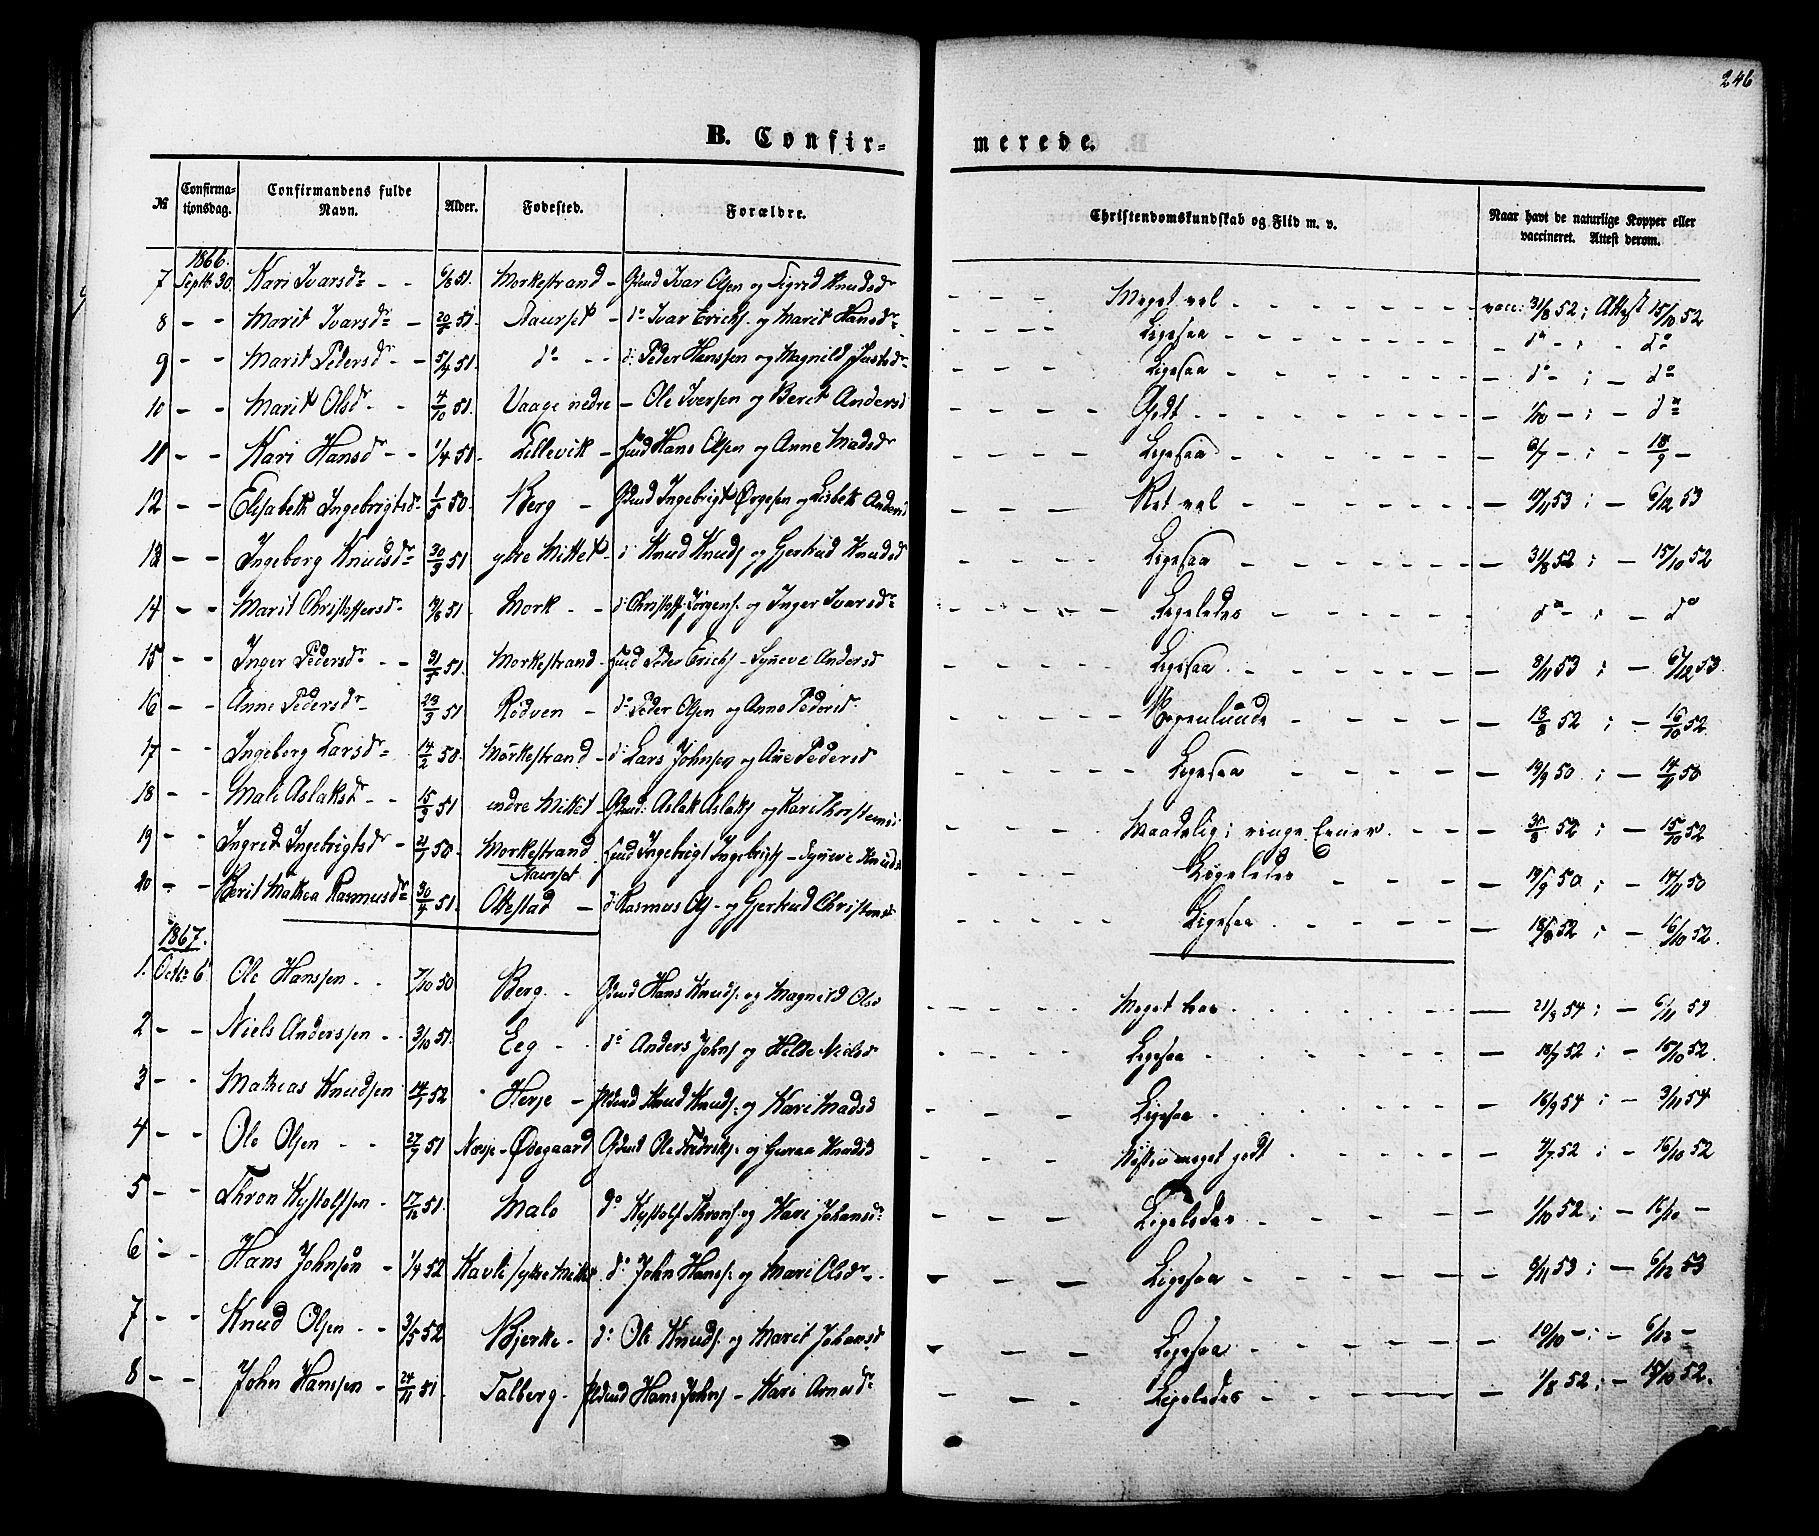 246
B. Confir-
merede.
№
Confirma-
tionsdag.
Confirmandens fulde
Navn.
Alder.
Fødested.
Forældre.
Christendomskundskab og Flid m. v.
Naar havt de naturlige Kopper eller
vaccineret. Attest derom.
1866.
7 Septb 30. Kari Ivarsdr - - 6/8 51. Morkestrand - Gdmd Ivar Olsen og Sigrid Knudsd - - - Meget vel - - - vacc: 31/8 52; Attest 15/10 52
8 - - Marit Ivarsdr - 20/5 51. Staurset - do Ivar Erichs. og Marit Hansdr - - - Ligesaa - - - - do - ; - do
9 - - Marit Pedersdr - - 5/4 51. do - - do Peder Hanssen og Magnild - - - Ligesaa - - - - do - ; - do
10 - - Marit Olsdr - - 4/10 51. Vaage nedre - Ole Iversen og Beret Andersd - - - Godt - - - - 1/10 - ; - do
11 - - Kari Hansdr - - 1/4 51. Lillevik - Hans Olsen og Anne Madsdr - - - Ligesaa - - - - 6/7 - ; - 18/9 -
12 - - Elisabeth Ingebrigtsdr 1/5 50. Berg - Gdmd Ingebrigt Ørgesen og Lisbeth Andersd - - - Ret vel - - - - 10/11 53 ; - 6/12 53
13 - - Ingeborg Knudsdr 30/3 51 ytre Mittet - do Knud Knuds og Gjertrud Knudsd - - - Ligesaa - - - - 31/8 52 ; - 15/10 52
14 - - Marit Christoffersd 51 Mork - - do Christoff Jørgens. og Inger Ivarsdr - - - Ligeledes - - - do - ; - do
15 - - Inger Pedersdr - - 31/5 51. Morkestrand - Peder Erichs - Syneve Andersd - - - Ligesaa - - - - 8/11 53 ; - 6/12 53
16 - - Anne Pedersdr - 23/3 51 Rødven - do Peder Olsen og Anne Pedersd - - - - - - 13/8 52 ; - 16/10 52
17 - - Ingeborg Larsdr 14/2 50. Morkestrand - do Lars Johnsen og Ane Pedersd - - - Ligesaa - - - - 19/9 50 ; - 50
18 - - Mali Aslaksd - - 15/3 51 indre Mittet - Gdmd: Aslak Aslaks og Kari - - - Maadelig; ringe Evner - - - 52 ; - 15/10 52
19 - - Ingrid Ingebrigtsdr - 21/7 50. Morkestrand Ingebrigt Ingebrigts - Synneve Knudsd - - - Ligeledes - - - 19/9 50 ; - 50
20 - - Berit Mathea Rasmusdr 30/4 51. Staurset
Ottestad - do Rasmus Ols - og Gjertrud Christensd - - - Ligesaa - - - - 18/8 52 ; - 16/10 52.
1867.
1. Octbr 6 Ole Hanssen - - 7/10 50 Berg - - Gdmd Hans Knuds. og Magnild Olsd - - - Meget - - - 21/8 54 ; - 6/11 54
2 - - Niels Anderssen - - 3/10 51. Eeg - - do Anders Johns og Helde Nielsd - - - Ligesaa - - - - 18/7 52 ; - 15/10 52.
3 - - Mathias Knudsen 14/7 52 Herje - Knud Knuds. og Kari Madsd - - Ligesaa - - - - 16/9 54 ; - 3/11 54
4 - - Ole Olsen - - 27/9 51 Norje-Ødegaard Gdmd Ole Fredriks. og Guraa Knudsd - - - Næsten meget godt - - - 7/7 52 ; - 16/10 52
5 - - Thron Kystolssen - 17/12 51. Malo do Kystols Throns. og Kari Johansdr - - - Ligeledes - - - 1/10 52 ; - 16/10 -
6 - - Hans Johnsøn - 1/4 52 Havli / ytre Mittet do John Hans. og Mari Olsdr - - - - Ligesaa - - - - 6/11 53 ; - 6/12 53
7 - - Knud Olsen - - 3/5 52 Bjerke - do Ole Knuds. og Marit Johansd - - - Ligesaa - - - 10/10 - ; - 6/12 -
8 - - John Hanssen - 24/11 51 Talberg - Hans Johns - Kari Arnesdr - - - Ligeledes - - - 1/8 52 ; - 15/10 52.